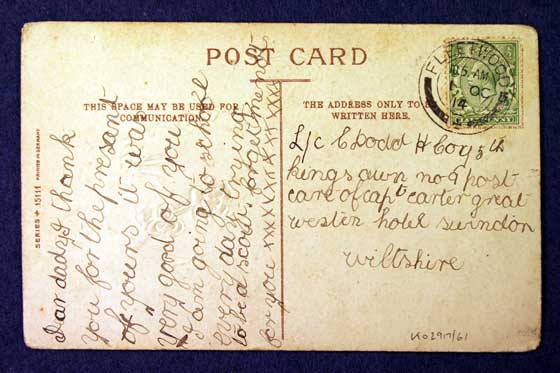 POST CARD
THIS SPACE MAY BE USED FOR
COMMUNICATION.
THE ADDRESS ONLY TO BE
WRITTEN HERE.
FLEETWOOD
AM
OC
14
SERIES 15111 PRINTED IN GERMANY
Dear dady I thank
you for the presant
of yours it was
very good of you
I am going to school
every day trying
to be a scolar forget me not
for you xxxxxxxxxxxxxxxx
L/c C Dodd H Coy 5th
kings own no 2 post
care of capt carter great
westen hotel swindon
wiltshire
KO2917/61